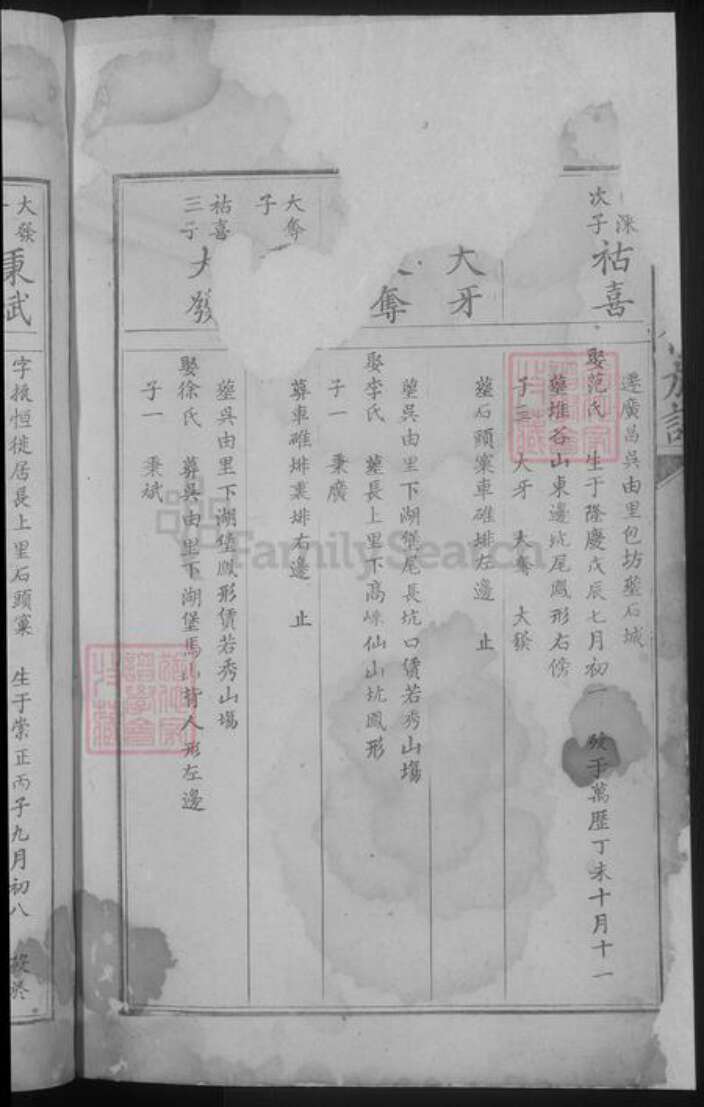 深
次子
祜喜
遷廣昌吳由里包坊塟石城
娶范氏 生于隆慶戊辰七月初一 歿于萬歷丁未十月十一
塟堆谷山東邊坑尾鳳形右傍
子三 大牙 大奪 大發
大牙
塟石頭窠車碓排左邊 止
奪
塟吳由里下湖堡尾長坑口債若秀山塲
娶李氏 塟長上里下高嵊仙山坑鳳形
子一 秉廣
大奪
子
葬車碓排裏排右邊 止
祜喜
三子
大發
塟吳由里下湖堡 形債若秀山塲
娶徐氏 葬吳由里下湖堡馬山背人形左邊
子一 秉斌
大發
秉武
字振恒徙居長上里石頭窠 生于崇正丙子九月初八 歿於
FamilySearch